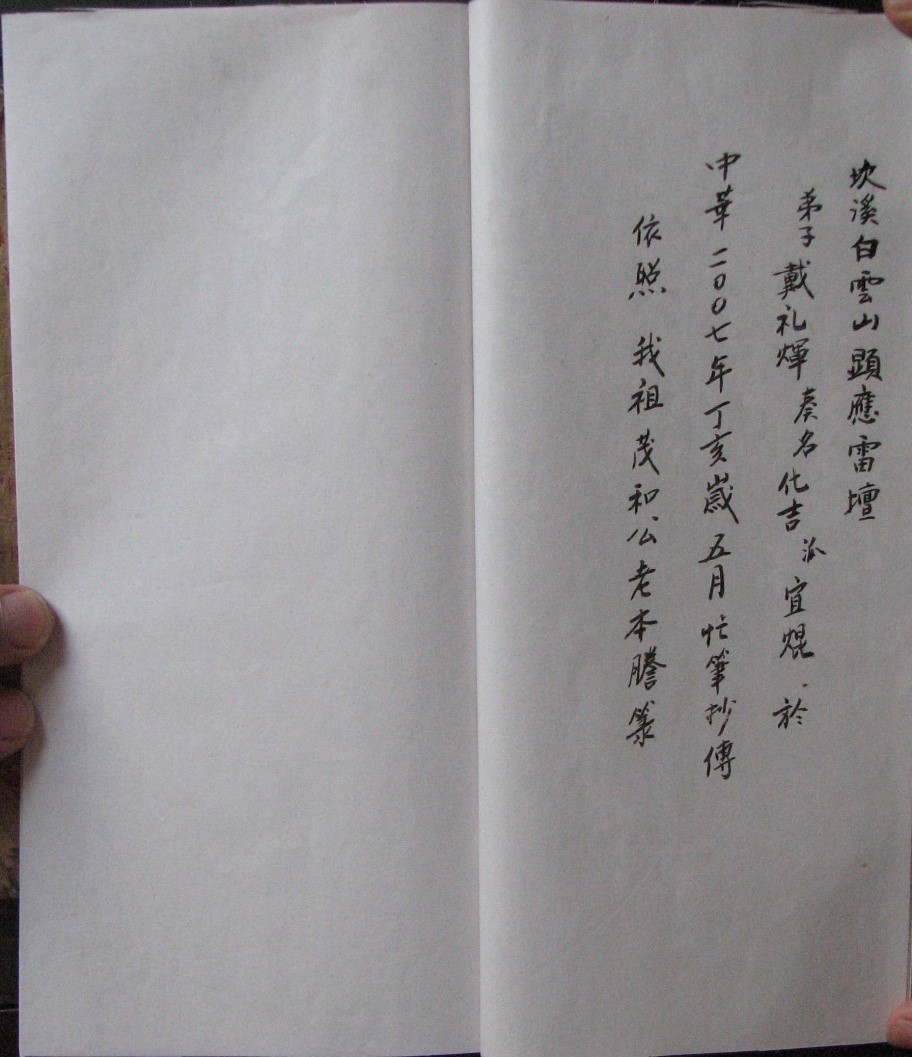 坎溪白雲山顕應雷壇
弟子戴礼煇奏名化吉 派宜焜 於
中華二00七年丁亥嵗五月忙筆抄傳
依照 我祖茂和公老本謄箓